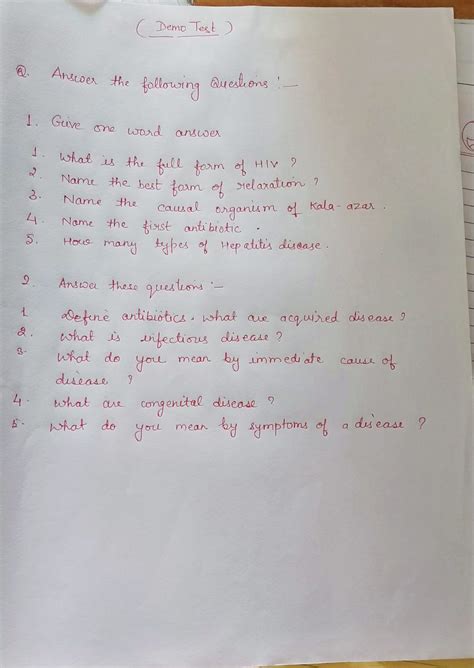 ( Demo Test )
Q. Answer the following Questions :—
1. Give one word answer
1. What is the full form of HIV ?
2. Name the best form of relaxation ?
3. Name the causal organism of Kala-azar.
4. Name the first antibiotic.
5. How many types of Hepatitis disease.
2. Answer these questions :—
1 Define antibiotics. what are acquired disease ?
2. What is infectious disease ?
3. What do you mean by immediate cause of
disease ?
4. What are congenital disease ?
5. What do you mean by symptoms of a disease ?